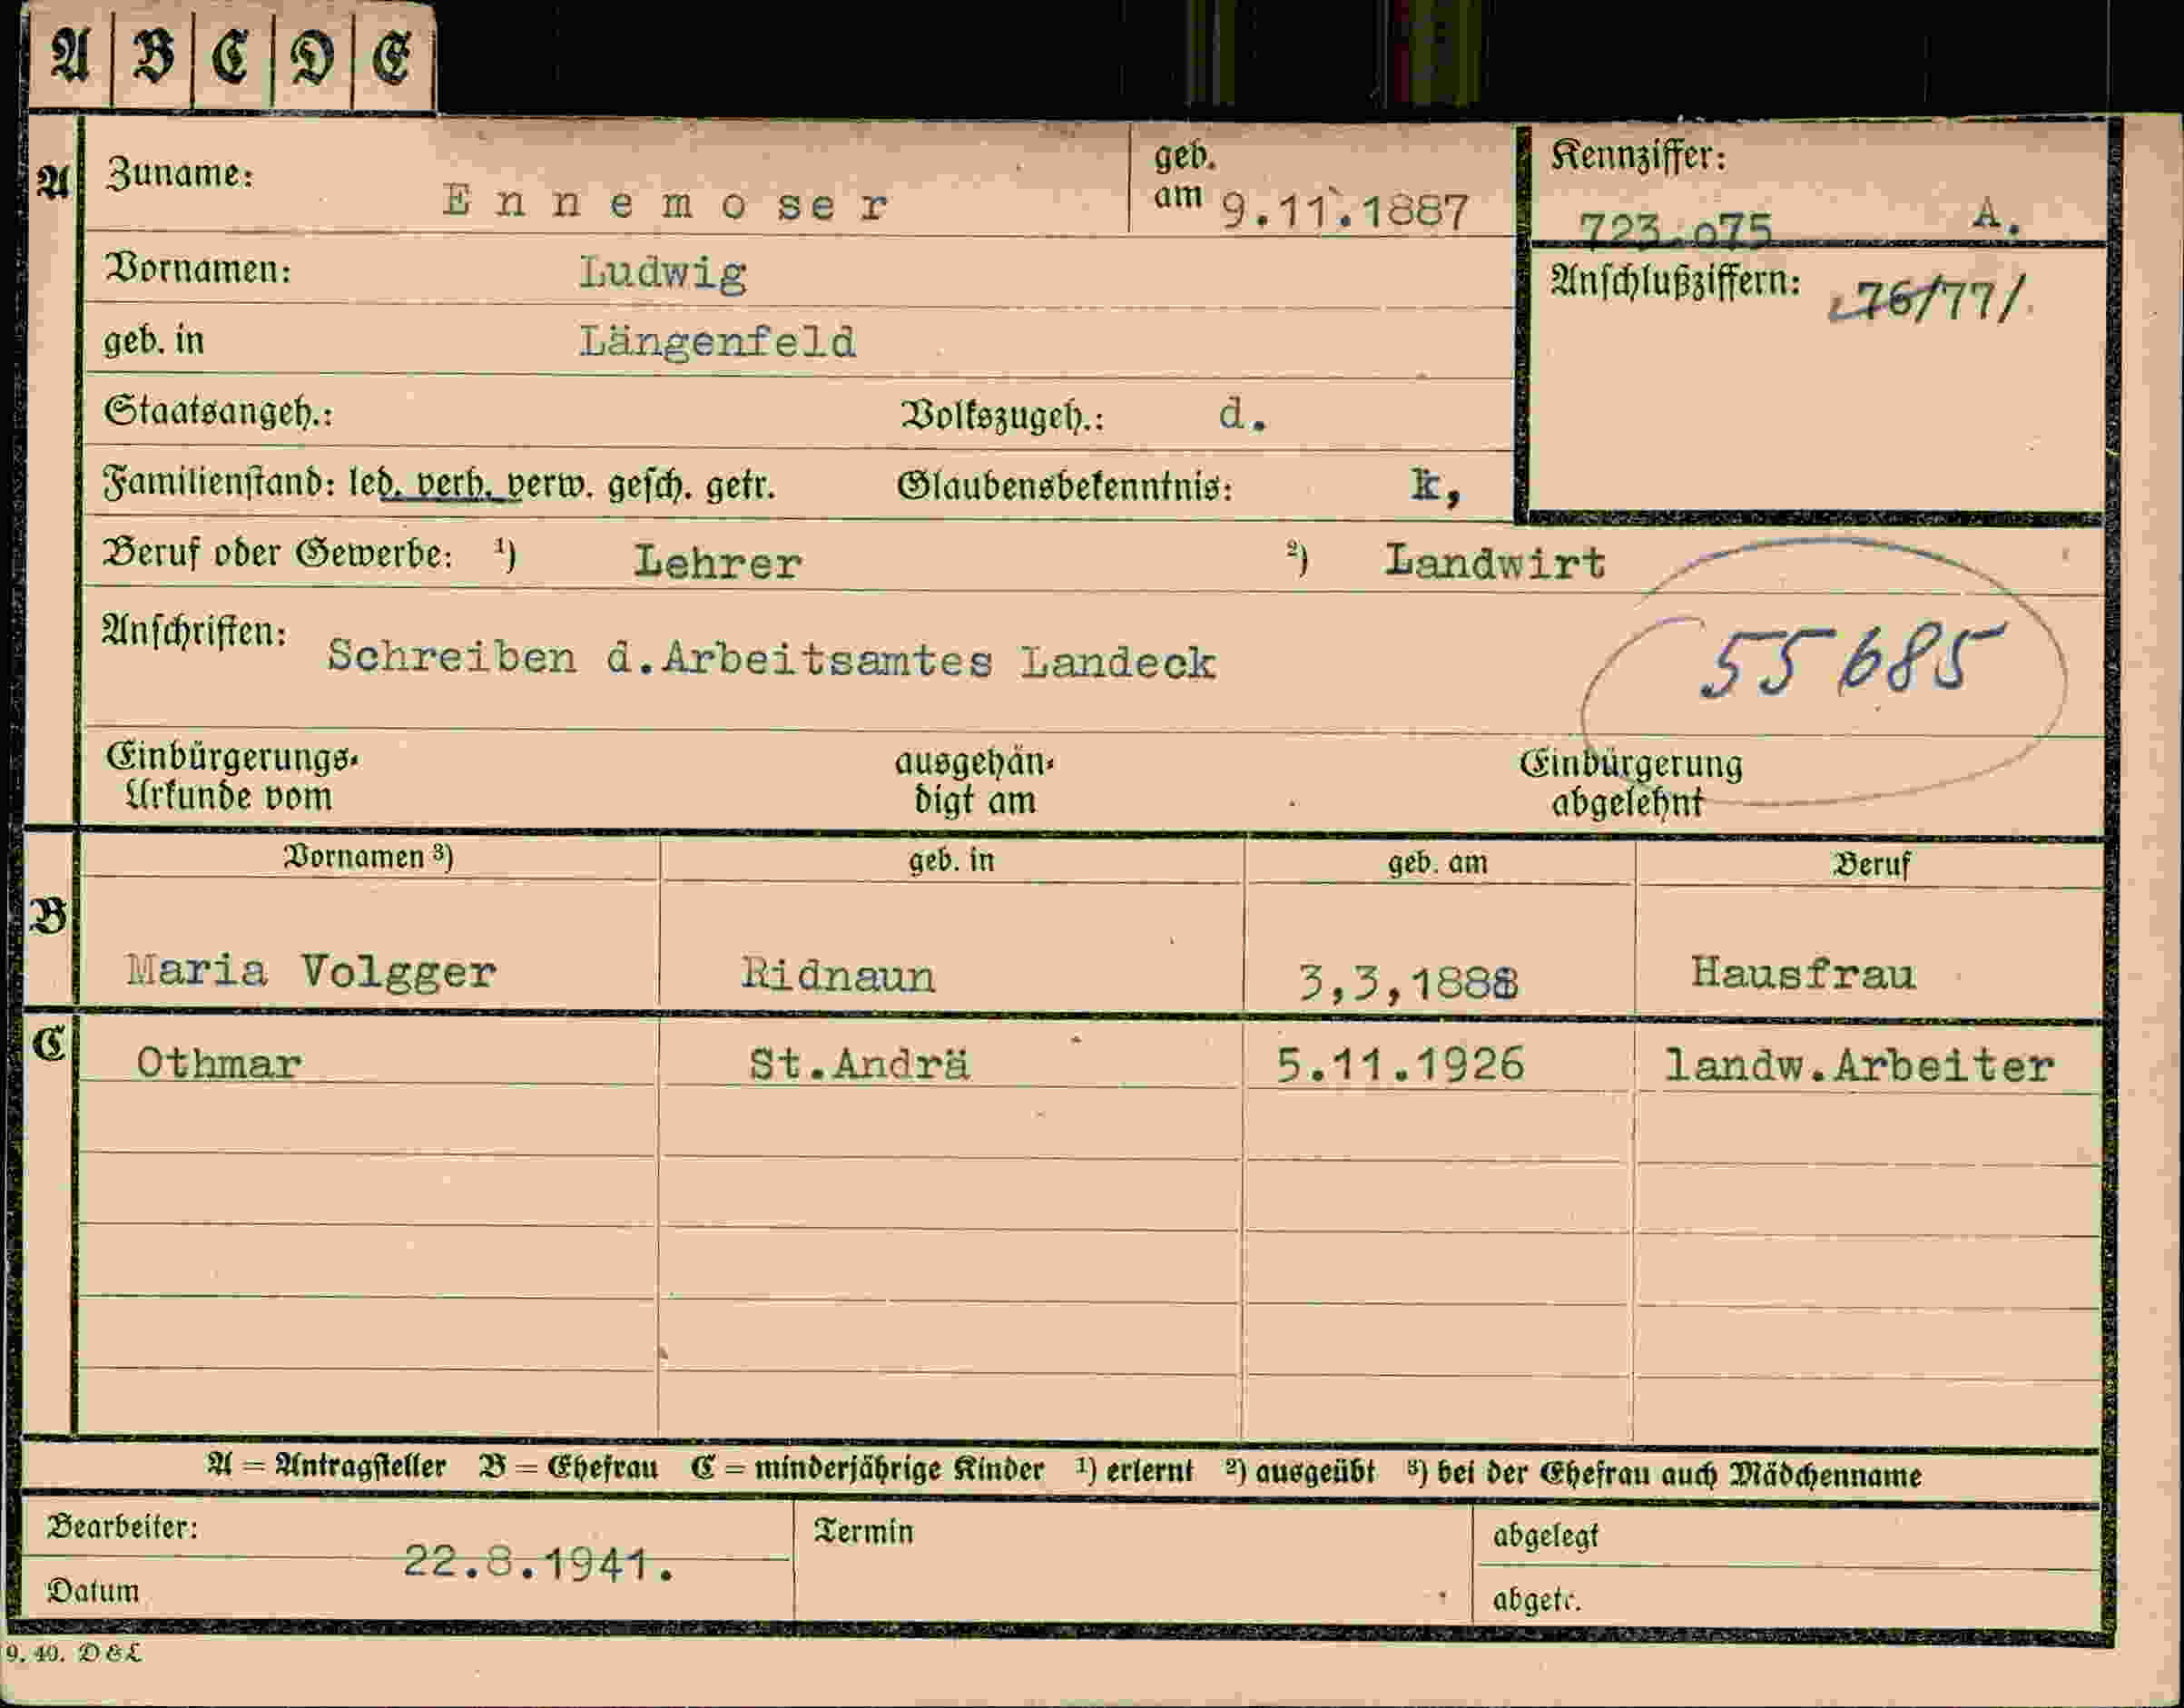 A B C D E
A Zuname: Ennemoser geb. am 9.11.1887 Kennziffer: 723.075 A.
Vornamen: Ludwig Anschlußziffern: 76/77/
geb. in Längenfeld
Staatsangeh.: Volkszugeh.: d.
Familienstand: led. verh. verw. gesch. getr. Glaubensbekenntnis: k,
Beruf oder Gewerbe: 1) Lehrer 2) Landwirt
Anschriften: Schreiben d.Arbeitsamtes Landeck 55685
Einbürgerungs- ausgehän- Einbürgerung
Urkunde vom digt am abgelehnt
Vornamen 3) geb. in geb. am Beruf
B Maria Volgger Ridnaun 3,3,1888 Hausfrau
C Othmar St.Andrä 5.11.1926 landw.Arbeiter
A = Antragsteller B = Ehefrau C = minderjährige Kinder 1) erlernt 2) ausgeübt 3) bei der Ehefrau auch Mädchenname
Bearbeiter: Termin abgelegt
22.8.1941.
Datum abgetr.
9. 40. D & L